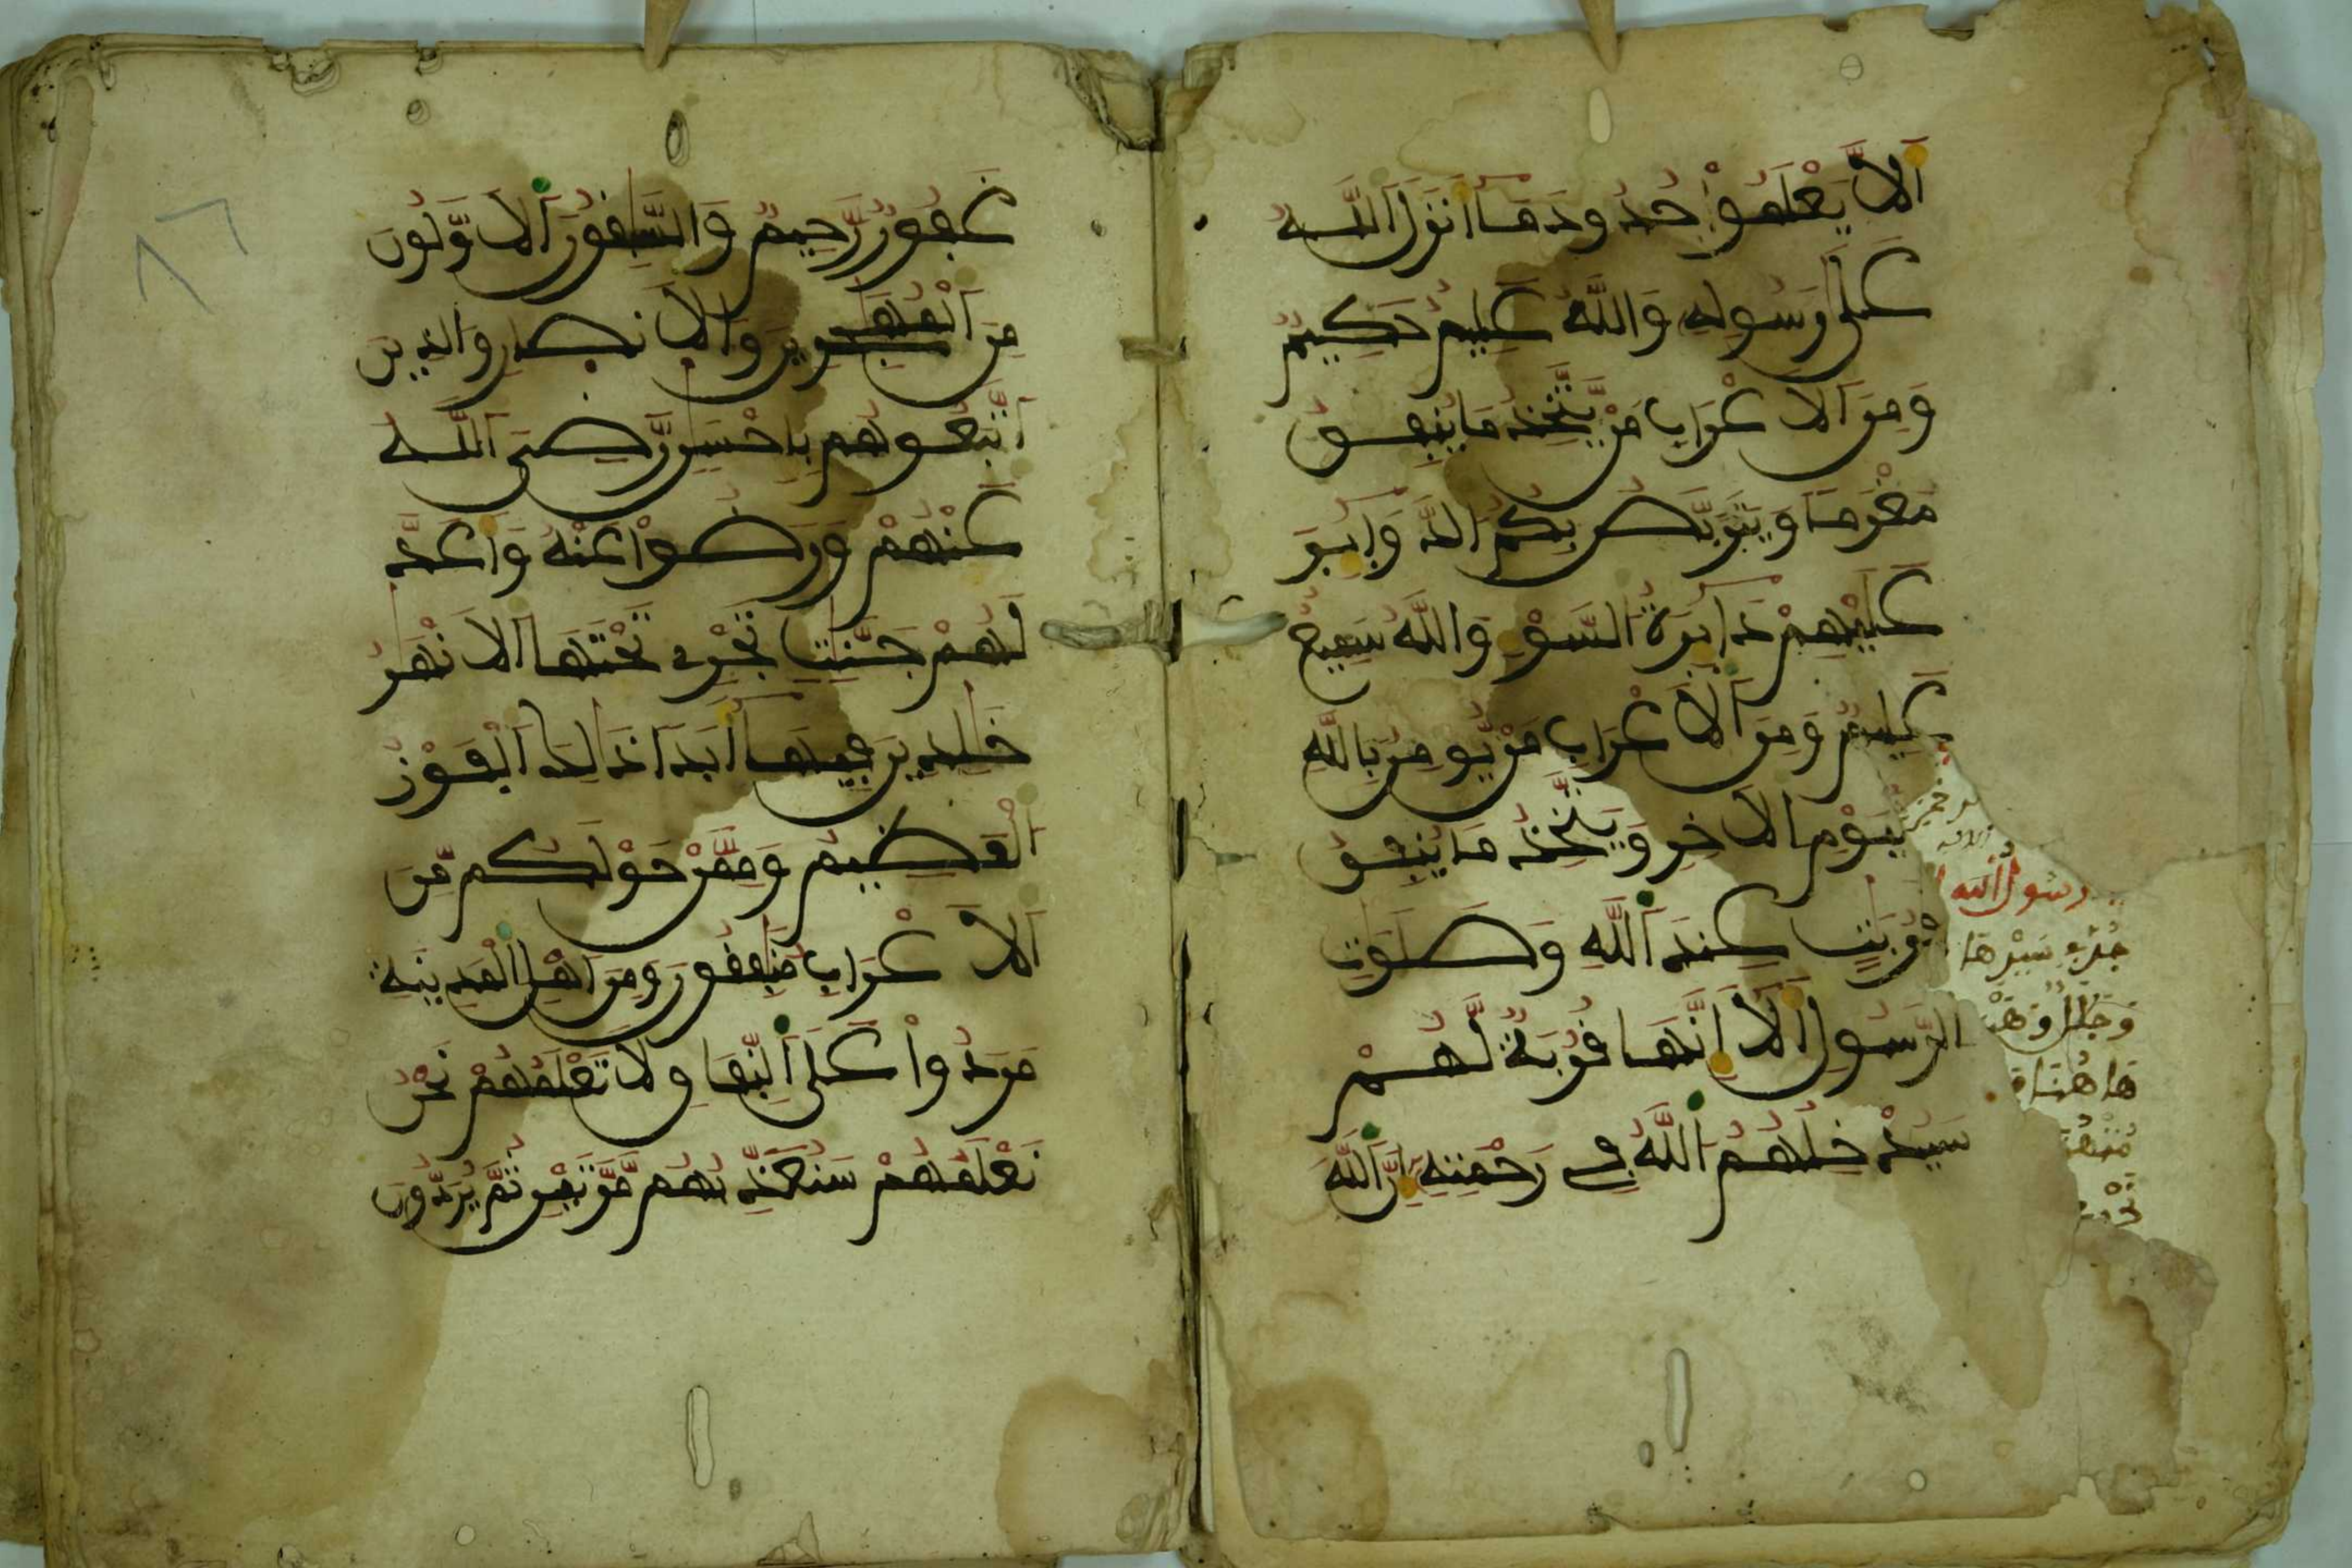 أَلَّا يَعْلَمُواْ حُدُودَ مَا أَنزَلَ اَللَّهُ
عَلَىٰ رَسُولِهِ وَاللَّهُ عَلِيمٌ حَكِيمٌ
وَمِنَ اَلَاعْرَابِ مَنْ يَّتَّخِذُ مَا يُنفِقُ
مَغْرَمًا وَيَتَرَبَّصُ بِكُمُ الدَّوَائِرَ
عَلَيْهِمْ دَائِرَةُ السَّوْءِ وَاللَّهُ سَمِيعٌ
عَلِيمٌ وَمِنَ اَلَاعْرَابِ مَنْ يُّومِنُ بِاللَّهِ
لْيَوْمِ اِلَاخِرِ وَيَتَّخِذُ مَا يُنفِقُ
قُرُبَٰتٍ عِندَ اَللَّهِ وَصَلَوَٰتِ
الرَّسُولِ أَلَا إِنَّهَا قُرُبَةٌ لَّهُمْ
سَيُدْخِلُهُمُ اللَّهُ فِي رَحْمَتِهِ إِنَّ اَللَّهَ
رسول الله
هاهنا
غَفُورٌ رَّحِيمٌ وَالسَّٰبِقُونَ اَلَاوَّلُونَ
مِنَ اَلْمُهَٰجِرِينَ وَالَانصَارِ وَالذِينَ
اَتَّبَعُوهُم بِإِحْسَٰنٍ رَّضِيَ اَللَّهُ
عَنْهُمْ وَرَضُواْ عَنْهُ وَأَعَدَّ
لَهُمْ جَنَّٰتٍ تَجْرِي تَحْتَهَا اَلَانْهَٰرُ
خَٰلِدِينَ فِيهَا أَبَدًا ذَٰلِكَ اَلْفَوْزُ
اَلْعَظِيمُ وَمِمَّنْ حَوْلَكُم مِّنَ
اَلَاعْرَابِ مُنَٰفِقُونَ وَمِنَ اَهْلِ اِلْمَدِينَةِ
مَرَدُواْ عَلَى اَلنِّفَاقِ لَا تَعْلَمُهُمْ نَحْنُ
نَعْلَمُهُمْ سَنُعَذِّبُهُم مَّرَّتَيْنِ ثُمَّ يُرَدُّونَ
٨٦